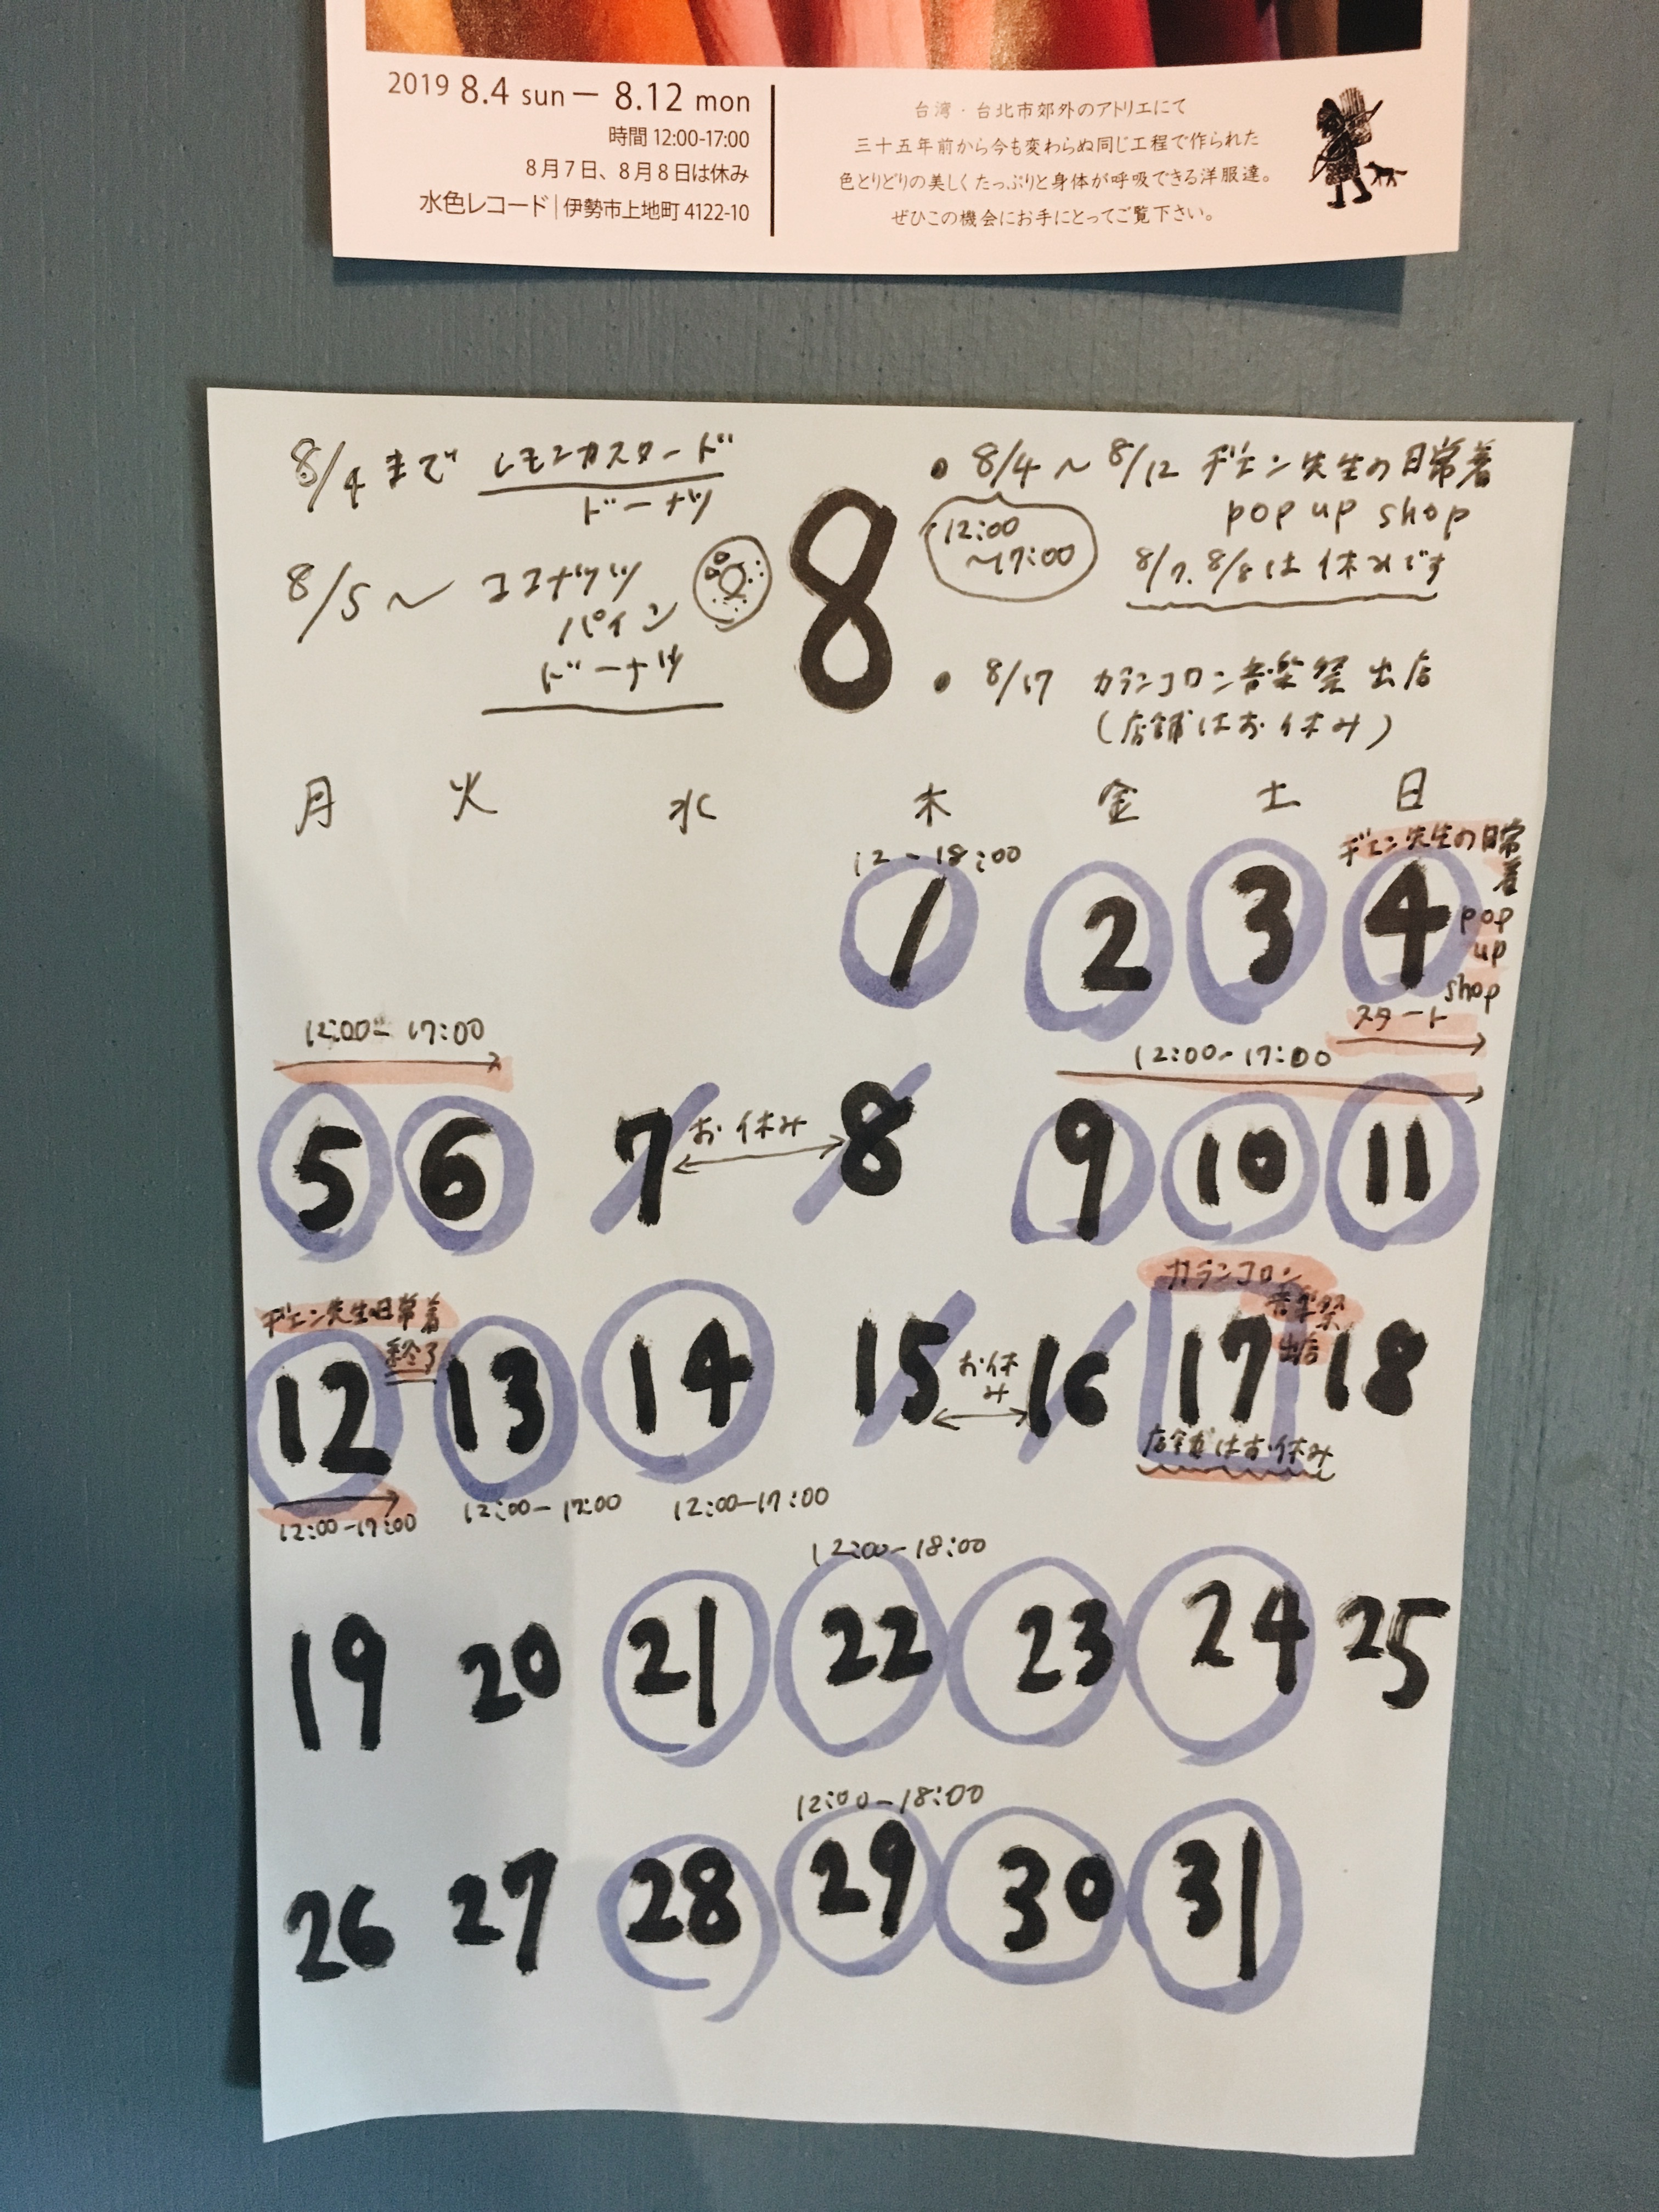 2019 8.4 sun — 8.12 mon
時間 12:00-17:00
8月7日、8月8日は休み
水色レコード | 伊勢市上地町 4122-10
台湾・台北市郊外のアトリエにて
三十五年前から今も変わらぬ同じ工程で作られた
色とりどりの美しくたっぷりと身体が呼吸できる洋服達。
ぜひこの機会にお手にとってご覧下さい。
8/4まで レモンカスタード
ドーナツ
8/5〜 ココナッツ
パイン
ドーナツ
8
• 8/4〜8/12 ヂェン先生の日常着
pop up shop
12:00
〜17:00
8/7.8/8は休みです
• 8/17 カランコロン音楽祭 出店
(店舗はお休み)
月 火 水 木 金 土 日
12-18:00
ヂェン先生の日常
着
pop
up
shop
スタート
1 2 3 4
12:00-17:00
12:00-17:00
5 6 7 お休み 8 9 10 11
ヂェン先生の日常着
終了
カランコロン
音楽祭
出店
12 13 14 15 お休
み 16 17 18
店舗はお休み
12:00-17:00 12:00-17:00 12:00-17:00
12:00-18:00
19 20 21 22 23 24 25
12:00-18:00
26 27 28 29 30 31